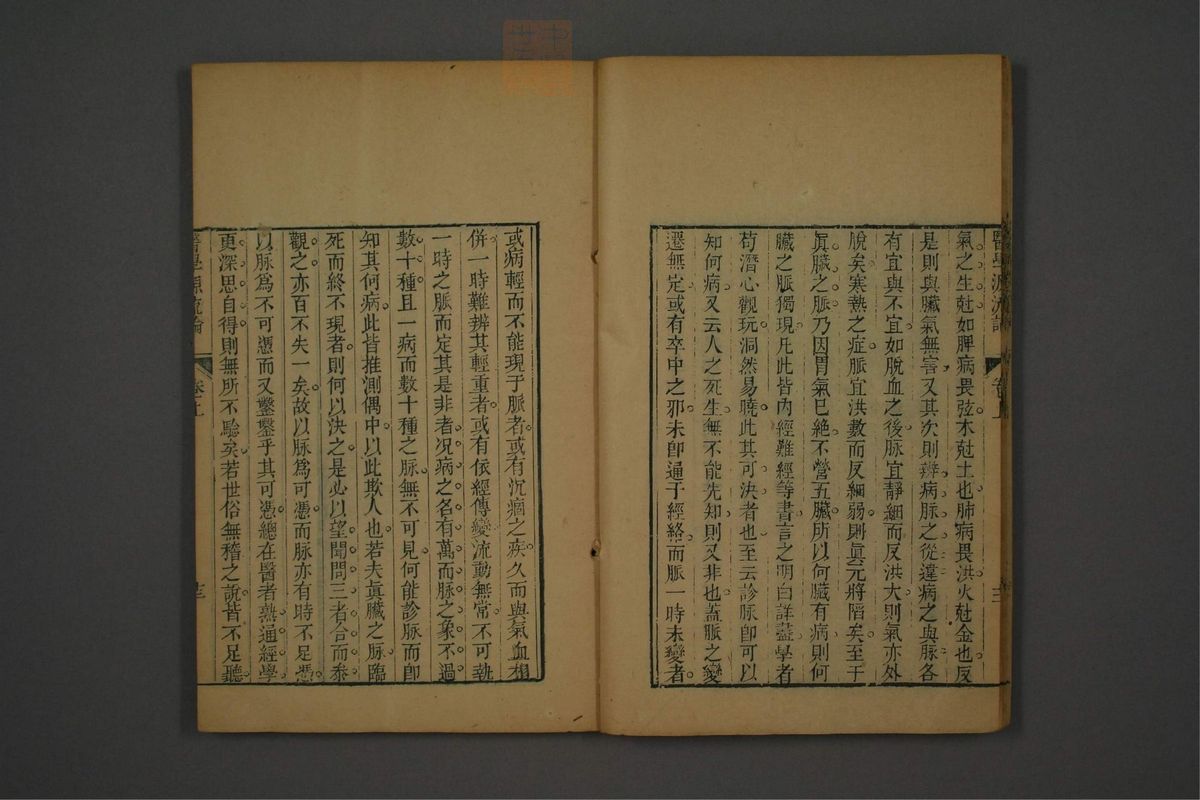 醫學源流論 卷上
氣之生尅如脾病畏弦木尅土也肺病畏洪火尅金也反
是則與臟氣無害又其次則辨病脈之從違病之與脈各
有宜與不宜如脫血之後脈宜靜細而反洪大則氣亦外
脫矣寒熱之症脈宜洪數而反細弱則眞元將陷矣至于
眞臟之脈乃因胃氣已絕不營五臟所以何臟有病則何
臟之脈獨現凡此皆內經難經等書言之明白詳盡學者
苟潛心觀玩洞然易曉此其可決者也至云診脈卽可以
知何病又云人之死生無不能先知則又非也蓋脈之變
遷無定或有卒中之邪未卽通于經絡而脈一時未變者
或病輕而不能現于脈者或有沉痼之疾久而與氣血相
併一時難辨其輕重者或有依經傳變流動無常不可執
一時之脈而定其是非者况病之名有萬而脈之象不過
數十種且一病而數十種之脈無不可見何能診脈而卽
知其何病此皆推測偶中以此欺人也若夫眞臟之脈臨
死而終不現者則何以決之是必以望聞問三者合而叅
觀之亦百不失一矣故以脈爲可憑而脈亦有時不足憑
以脈爲不可憑而又鑿鑿乎其可憑總在醫者熟通經學
更深思自得則無所不驗矣若世俗無稽之說皆不足聽
醫學源流論 卷上